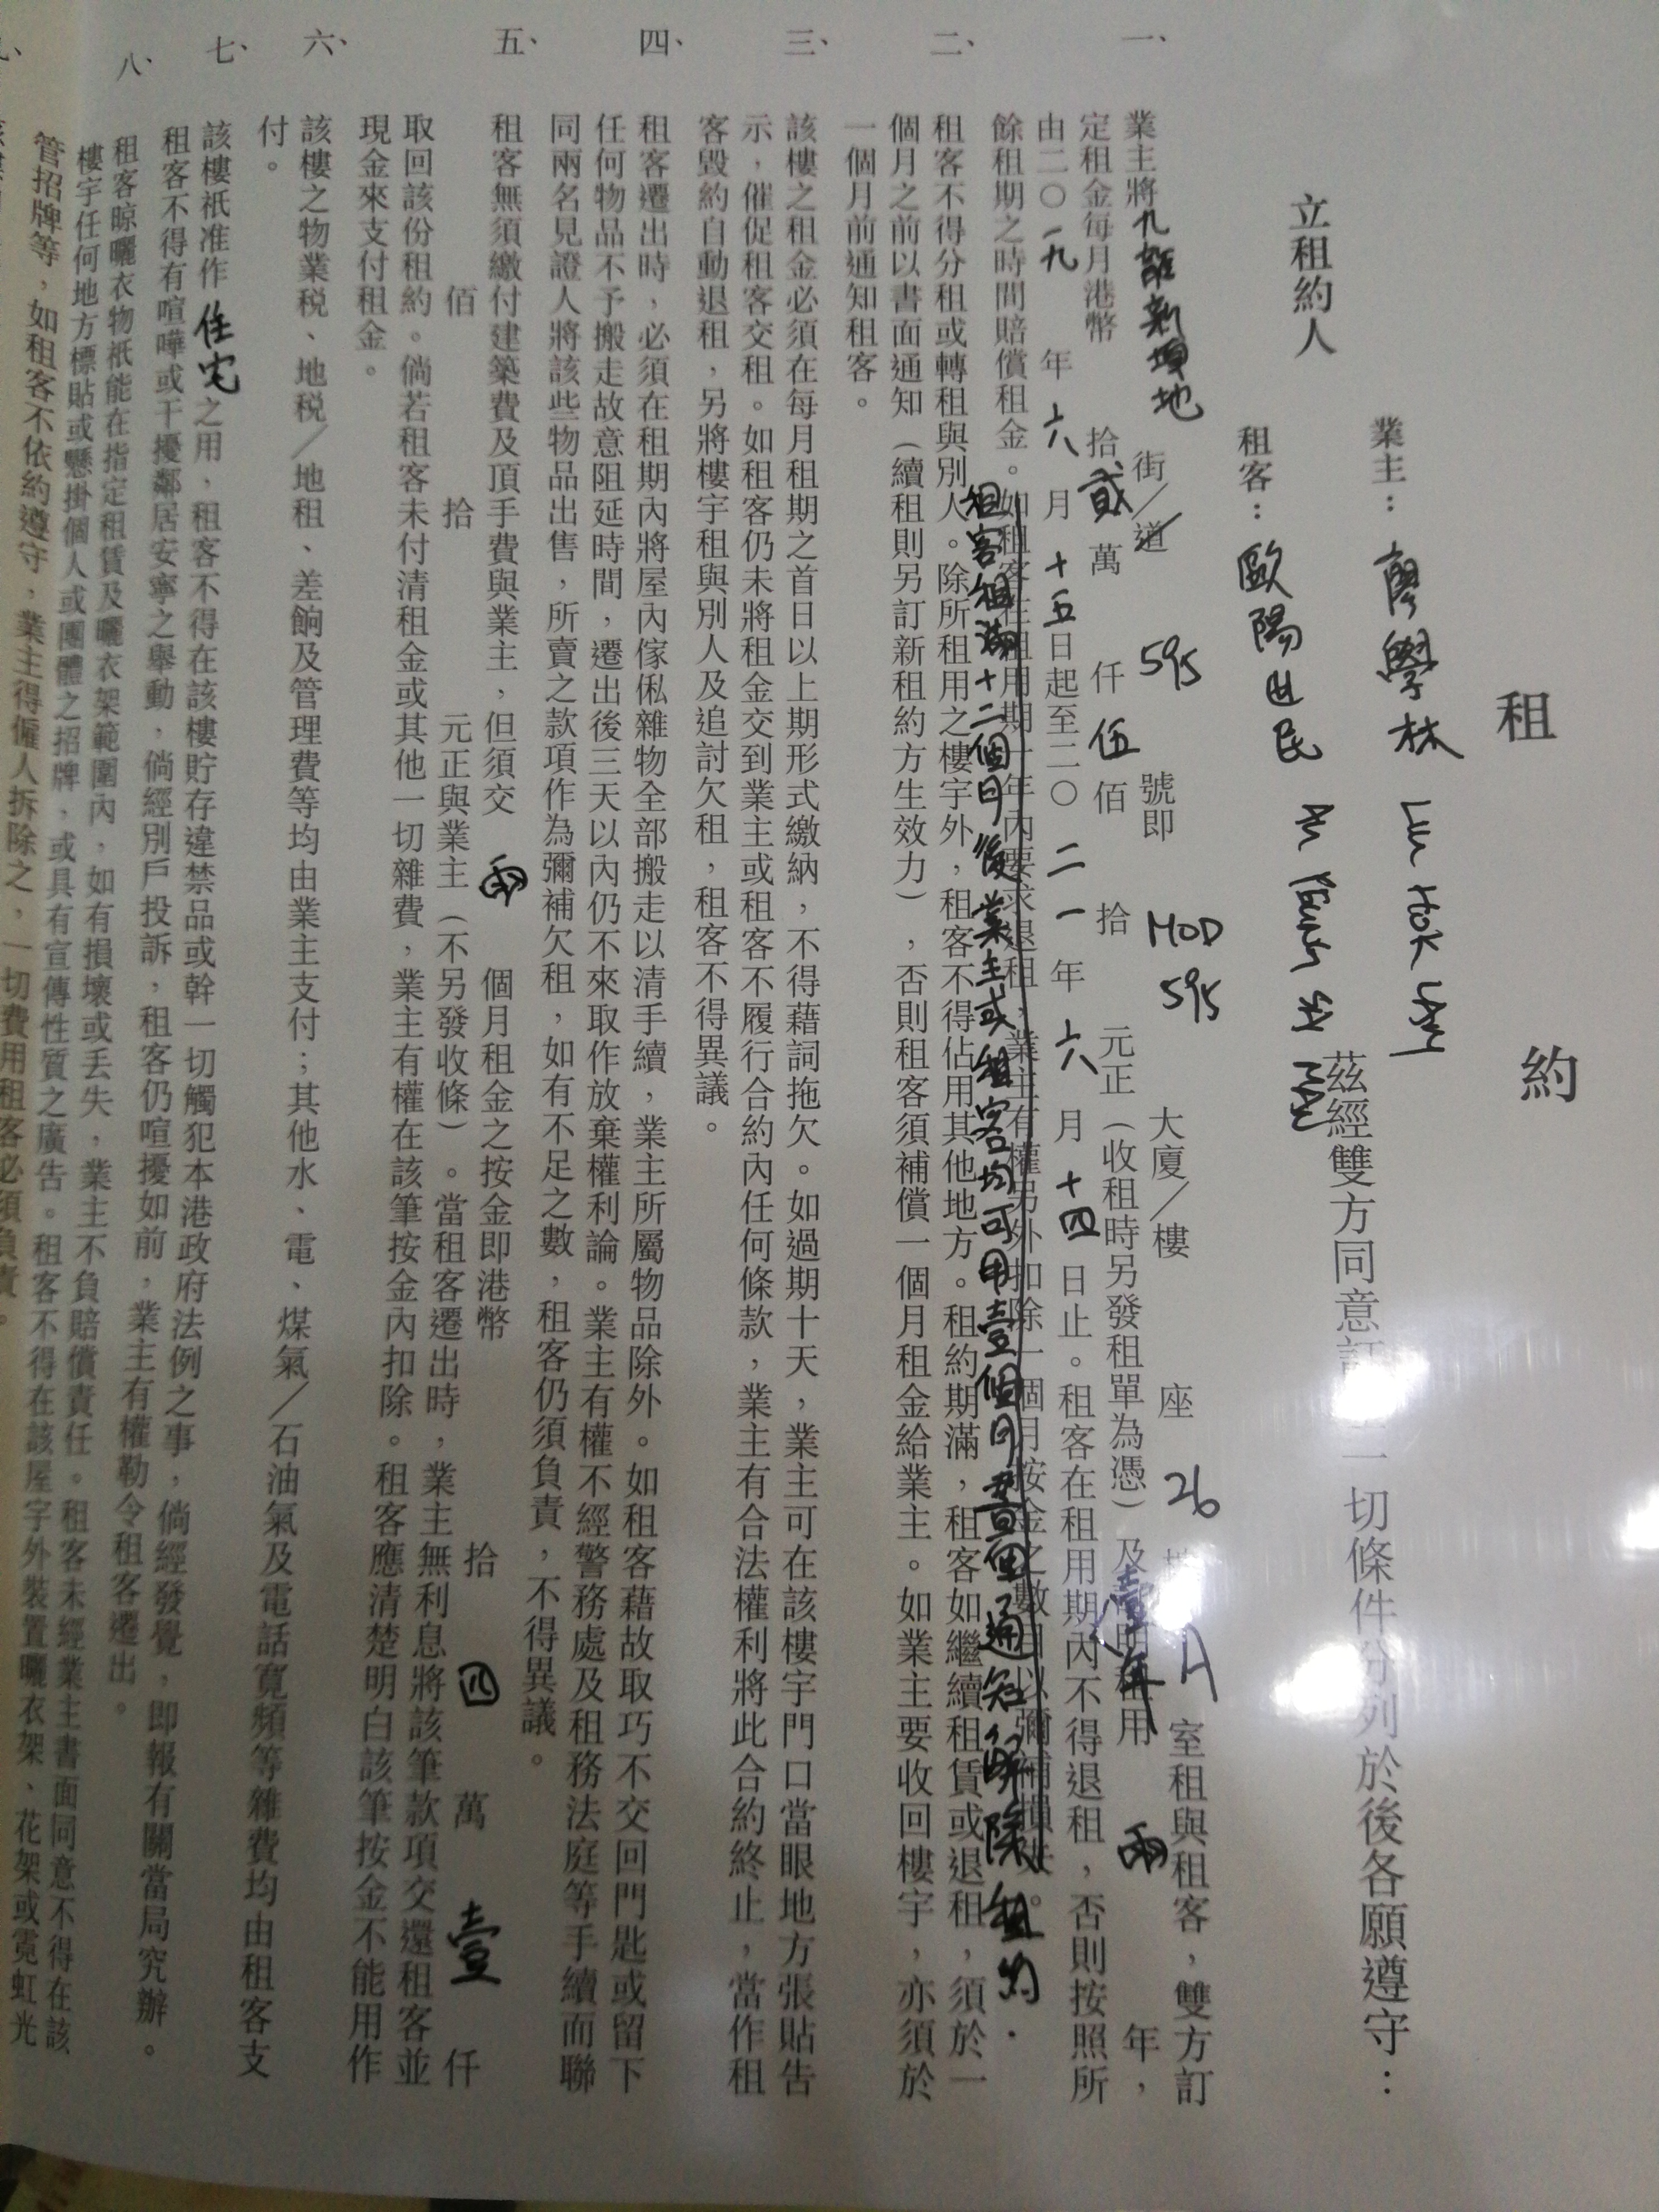 租約
業主：廖學林
立租約人 茲經雙方同意訂 一切條件分列於後各願遵守：
租客：歐陽世民
一、業主將九龍新填地街／道 595 號即 MOD 595 大廈／樓 座 26 A 室租與租客，雙方訂
定租金每月港幣 拾貳萬 仟伍佰 拾 元正（收租時另發租單為憑）及 租用兩年，
壹年
由二〇一九年六月十五日起至二〇二一年六月十四日止。租客在租用期內不得退租，否則按照所
餘租期之時間賠償租金。如租客在租用期一年內要求退租，業主有權另外扣除一個月按金之數目以彌補損失。
租客租滿十二個月後業主或租客均可用壹個月書面通知解除租約．
二、租客不得分租或轉租與別人。除所租用之樓宇外，租客不得佔用其他地方。租約期滿，租客如繼續租賃或退租，須於一
個月之前以書面通知（續租則另訂新租約方生效力），否則租客須補償一個月租金給業主。如業主要收回樓宇，亦須於
一個月前通知租客。
三、該樓之租金必須在每月租期之首日以上期形式繳納，不得藉詞拖欠。如過期十天，業主可在該樓宇門口當眼地方張貼告
示，催促租客交租。如租客仍未將租金交到業主或租客不履行合約內任何條款，業主有合法權利將此合約終止，當作租
客毀約自動退租，另將樓宇租與別人及追討欠租，租客不得異議。
四、租客遷出時，必須在租期內將屋內傢俬雜物全部搬走以清手續，業主所屬物品除外。如租客藉故取巧不交回門匙或留下
任何物品不予搬走故意阻延時間，遷出後三天以內仍不來取作放棄權利論。業主有權不經警務處及租務法庭等手續而聯
同兩名見證人將該些物品出售，所賣之款項作為彌補欠租，如有不足之數，租客仍須負責，不得異議。
五、租客無須繳付建築費及頂手費與業主，但須交兩個月租金之按金即港幣 拾四萬壹仟
佰 拾 元正與業主（不另發收條）。當租客遷出時，業主無利息將該筆款項交還租客並
取回該份租約。倘若租客未付清租金或其他一切雜費，業主有權在該筆按金內扣除。租客應清楚明白該筆按金不能用作
現金來支付租金。
六、該樓之物業税、地税／地租、差餉及管理費等均由業主支付；其他水、電、煤氣／石油氣及電話寬頻等雜費均由租客支
付。
七、該樓祇准作住宅之用，租客不得在該樓貯存違禁品或幹一切觸犯本港政府法例之事，倘經發覺，即報有關當局究辦。
租客不得有喧嘩或干擾鄰居安寧之舉動，倘經別戶投訴，租客仍喧擾如前，業主有權勒令租客遷出。
八、租客晾曬衣物祇能在指定租賃及曬衣架範圍內，如有損壞或丢失，業主不負賠償責任。租客未經業主書面同意不得在該
樓宇任何地方標貼或懸掛個人或團體之招牌，或具有宣傳性質之廣告。租客不得在該屋宇外裝置曬衣架、花架或霓虹光
管招牌等，如租客不依約遵守，業主得僱人拆除之，一切費用租客必須負責。